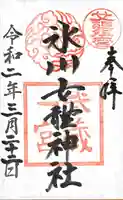 奉拝
氷川女體神社
武蔵一宮
令和二年三月二十二日